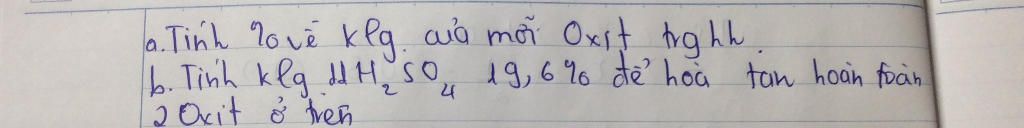 a. Tính % về klg. của mỗi Oxit trghh.
b. Tính klg ddH₂SO₄ 19,6% để hoà tan hoàn toàn
2 Oxit ở trên